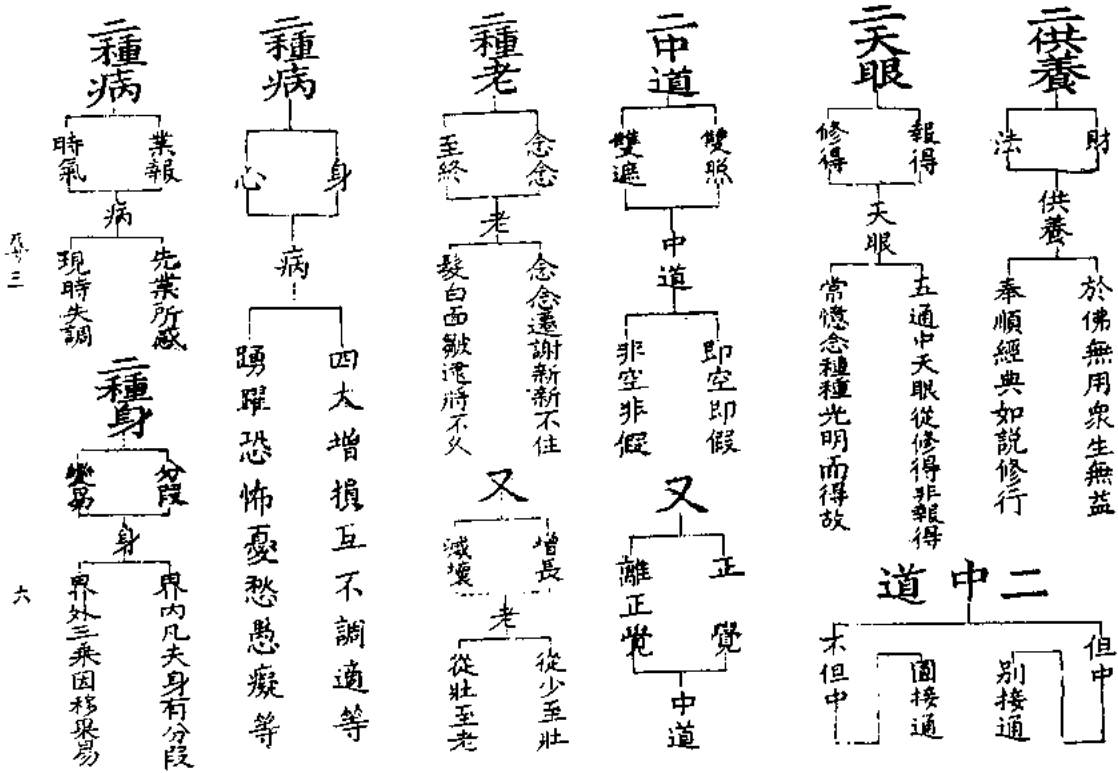 二供養
財
法
供養
於佛無用衆生無益
奉順經典如説修行
二天眼
報得
修得
天眼
五通中天眼從修得非報得
常憶念種種光明而得故
二中道
但中
別接通
圓接通
不但中
二中道
雙照
雙遮
中道
即空即假
非空非假
又
正覺
離正覺
中道
二種老
念念
至終
老
念念遷謝新新不住
髮白面皺逮將不久
又
增長
滅壞
老
從少至壯
從壯至老
二種病
身
心
病
四大增損互不調適等
踴躍恐怖憂愁愚癡等
二種病
業報
時氣
病
先業所感
現時失調
二種身
分段
變易
身
界内凡夫身有分段
界外三乘因移果易
三
六